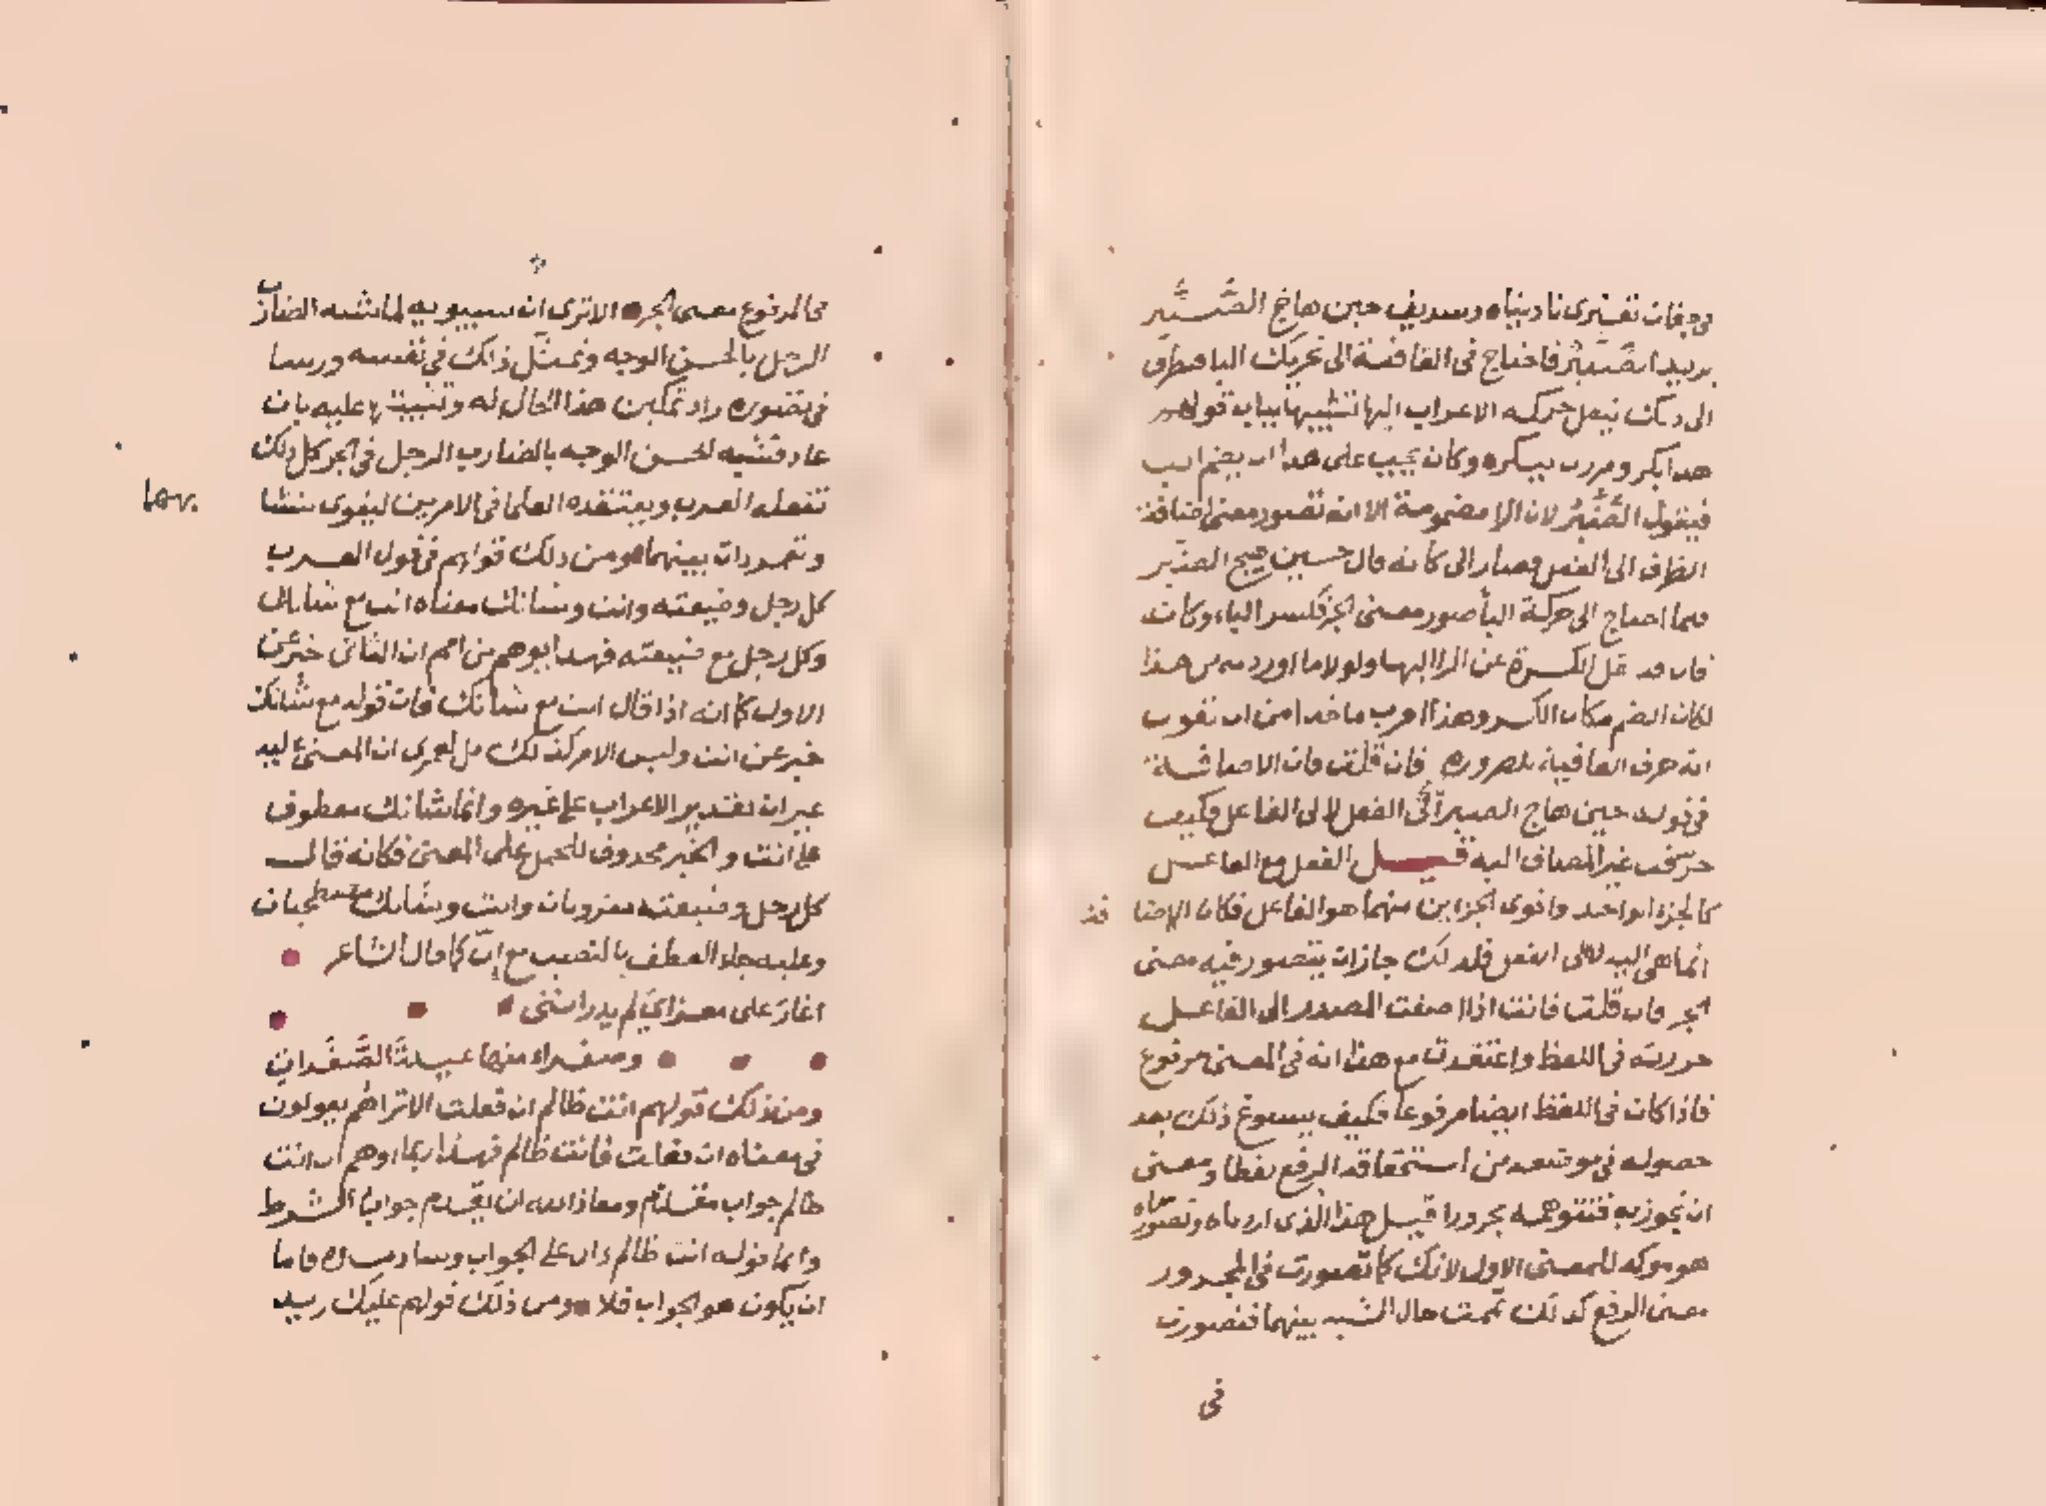 في جفان تعتري نادينا وسديف حين هاج الصنبر
يريد الصنبر فاحتاج في القافية الى تحريك الباء فتطرق
الى ذلك نقل حركة الاعراب اليها تشبيها بباب قولهم
هذا بكر ومررت ببكر وكان يجيب على هذا ان يضم الباء
فيقول الصنبر لان الراء مضمومة الا انه تصور معنى اضافة
الظرف الى الفعل فصار الى كانه قال حين هيج الصنبر
فلما احتاج الى حركة الباء تصور معنى الجر فكسر الباء وكانه
قد نقل الكسرة عن الراء اليها ولولا ما اوردته من هذا
لكان الضم مكان الكسر وهذا اقرب ماخذا من ان تقول
انه حرف القافية للضرورة فان قلت فان الاضافة
في قوله حين هاج الصنبر انما هي الى الفعل لا الى الفاعل فكيف
حرفت غير المضاف اليه قيل الفعل مع الفاعل
كالجزء الواحد واقوى الجزاين منهما هو الفاعل فكان الاضافة
انما هي اليه لا الى الفعل فلذلك جاز ان يتصور فيه معنى
الجر فان قلت فانت اذا اضفت المصدر الى الفاعل
جررته في اللفظ واعتقدت مع هذا انه في المعنى مرفوع
فاذا كان في اللفظ ايضا مرفوعا فكيف يسوغ ذلك بعد
حصوله في موضعه من استحقاقه الرفع لفظا ومعنى
ان تحوز به فتتوهمه مجرورا قيل هذا الذي اردناه وتصورناه
هو موكد للمعنى الاول لانك كما تصورت في المجرور
معنى الرفع كذلك تممت حال الشبه بينهما فتصورت
في
في المرفوع معنى الجر الا ترى ان سيبويه لما شبه الضارب
الرجل بالحسن الوجه وتمثل ذلك في نفسه ورسا
في تصوره زاد تمكين هذا الحال له وتثبيتها عليه بان
عاد فشبه الحسن الوجه بالضارب الرجل في الجر كل ذلك
تفعله العرب ويعتقده العلماء في الامرين ليقوى تشابههما
ومن ذلك قولهم في قول العرب
كل رجل وضيعته وانت وشانك معناه انت مع شانك
وكل رجل مع ضيعته فهذا يوهم من امم ان الثاني خبر عن
الاول كما انه اذا قال انت مع شانك فان قوله مع شانك
خبر عن انت وليس الامر كذلك بل لعمري ان المعنى عليه
غير ان تقدير الاعراب على غيره وانما شانك معطوف
على انت والخبر محذوف للحمل على المعنى فكانه قال
كل رجل وضيعته مقرونان وانت وشانك مصطحبان
وعليه جاء العطف بالنصب مع ان كما قال الشاعر
اغار على معزاي لم يدر انني
وصفراء منها عبلة الصفوات
ومن ذلك قولهم انت ظالم ان فعلت الا تراهم يقولون
في معناه ان فعلت فانت ظالم فهذا ربما اوهم ان انت
ظالم جواب مقدم ومعاذ الله ان يقدم جواب الشرط
وانما قوله انت ظالم دال على الجواب وساد مسده فاما
ان يكون هو الجواب فلا ومن ذلك قولهم عليك زيد